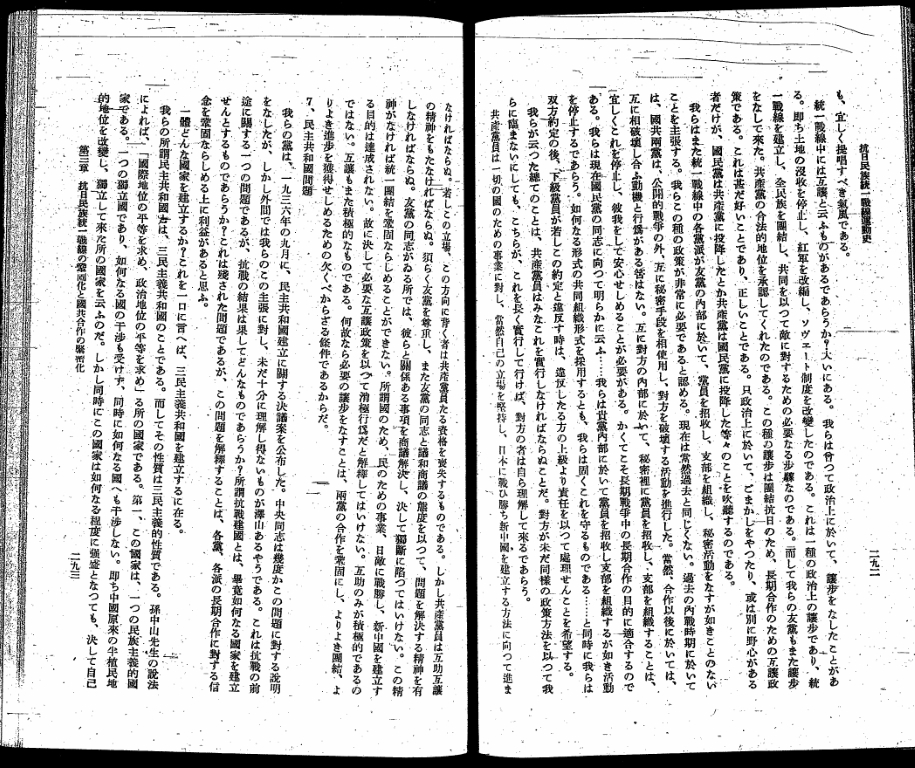 抗日民族統一戰線運動史
二九二
も、宜しく提唱すべき氣風である。
統一戰線中には互讓と云ふものがあるであらうか?大いにある。我らは曾つて政治上に於いて、讓歩をなしたことがあ
る。即ち土地の沒收を停止し、紅軍を改編し、ソヴェート制度を改變したのである。これは一種の政治上の讓歩であり、統
一戰線を建立し、全民族を團結し、共同を以つて敵に對するための必要なる步驟なのである。而して我らの友黨もまた讓歩
をなして來た。共產黨の合法的地位を承認してくれたのである。この種の讓歩は團結抗日のため、長期合作のための互讓政
策である。これは甚だ好いことであり、正しいことである。只政治上に於いて、ごまかしをやつたり、或は別に野心がある
者だけが、國民黨は共產黨に投降したとか共產黨は國民黨に投降した等々のことを吹聽するのである。
我らはまた統一戰線中の各黨派が友黨の內部に於いて、黨員を招收し、支部を組織し、秘密活動をなすが如きことのない
ことを主張する。我らこの種の政策が非常に必要であると認める。現在は當然過去と同じくない。過去の內戰時期に於いて
は、國共兩黨は、公開的戰爭の外、互に秘密手段を相使用し、對方を破壞する活動を推行した。當然、合作以後に於いては、
互に相破壞し合ふ動機と行爲がある筈はない。互に對方の內部に於いて、秘密裡に黨員を招收し、支部を組織することは、
宜しくこれを停止し、彼我をして安心せしめることが必要がある。かくてこそ長期戰爭中の長期合作の目的に適合するので
ある。我らは現在國民黨の同志に向つて明らかに云ふ……我らは貴黨內部に於いて黨員を招收し支部を組織するが如き活動
を停止するであらう。如何なる形式の共同組織形式を採用するとも、我らは固くこれを守るものである……と同時に我らは
双方約定の後、下級黨員が若しこの約定と違反する時は、違反したる方の上級より責任を以つて處理せんことを希望する。
我らが云つた總てのことは、共產黨員はみなこれを實行しなければならぬことだ。對方が未だ同樣の政策方法を以つて我
らに臨まないにしても、こちらが、これを長く實行して行けば、對方の者は自ら理解して來るであらう。
共產黨員は一切の國のための事業に對し、當然自己の立場を堅持し、日本に戰ひ勝ち新中國を建立する方法に向つて進ま
なければならぬ。若しこの立場、この方向に背く者は共產黨員たる資格を喪失するものである。しかし共產黨員は互助互讓
の精神をもたなければならぬ。須らく友黨を尊重し、また友黨の同志と議和商議の態度を以つて、問題を解決する精神を有
しなければならぬ。友黨の同志がゐる所では、彼らと關係ある事項を商議解決し、決して獨斷に陷つてはいけない。この精
神がなければ統一團結を鞏固ならしめることができない。所謂國のため、民のための事業、日敵に戰勝し、新中國を建立す
る目的は達成されない。故に決して必要な互讓政策を以つて消極行爲だと解釋してはいけない。互助のみが積極的であるの
ではない。互讓もまた積極的なものである。何故なら必要の讓步をなすことは、兩黨の合作を鞏固にし、よりよき團結、よ
りよき進步を獲得せしめるための欠くべからざる條件であるからだ。
7、民主共和國問題
我らの黨は、一九三六年の九月に、民主共和國建立に關する決議案を公布した。中央同志は幾度かこの問題に對する說明
をなしたが、しかし外間では我らのこの主張に對し、未だ十分に理解し得ないものが澤山あるやうである。これは抗戰の前
途に關する一つの問題であるが、抗戰の結果は果してどんなものであらうか?所謂抗戰建國とは、畢竟如何なる國家を建立
せんとするものであらうか?これは殘された問題であるが、この問題を解釋することは、各黨、各派の長期合作に對する信
念を鞏固ならしめる上に利益があると思ふ。
一體どんな國家を建立するか?これを一口に言へば、三民主義共和國を建立するに在る。
我らの所謂民主共和國とは、三民主義共和國のことである。而してその性質は三民主義的性質である。孫中山先生の說法
によれば、「國際地位の平等を求め、政治地位の平等を求め」る所の國家である。第一、この國家は、一つの民族主義的國
家である。一つの獨立國であり、如何なる國の干涉も受けず、同時に如何なる國へも干涉しない。即ち中國原來の半植民地
的地位を改變し、獨立して來た所の國家を云ふのだ。しかし同時にこの國家は如何なる程度に强盛となつても、決して自己
第三章 抗日民族統一戰線の鞏固化と國共合作の緊密化
二九三